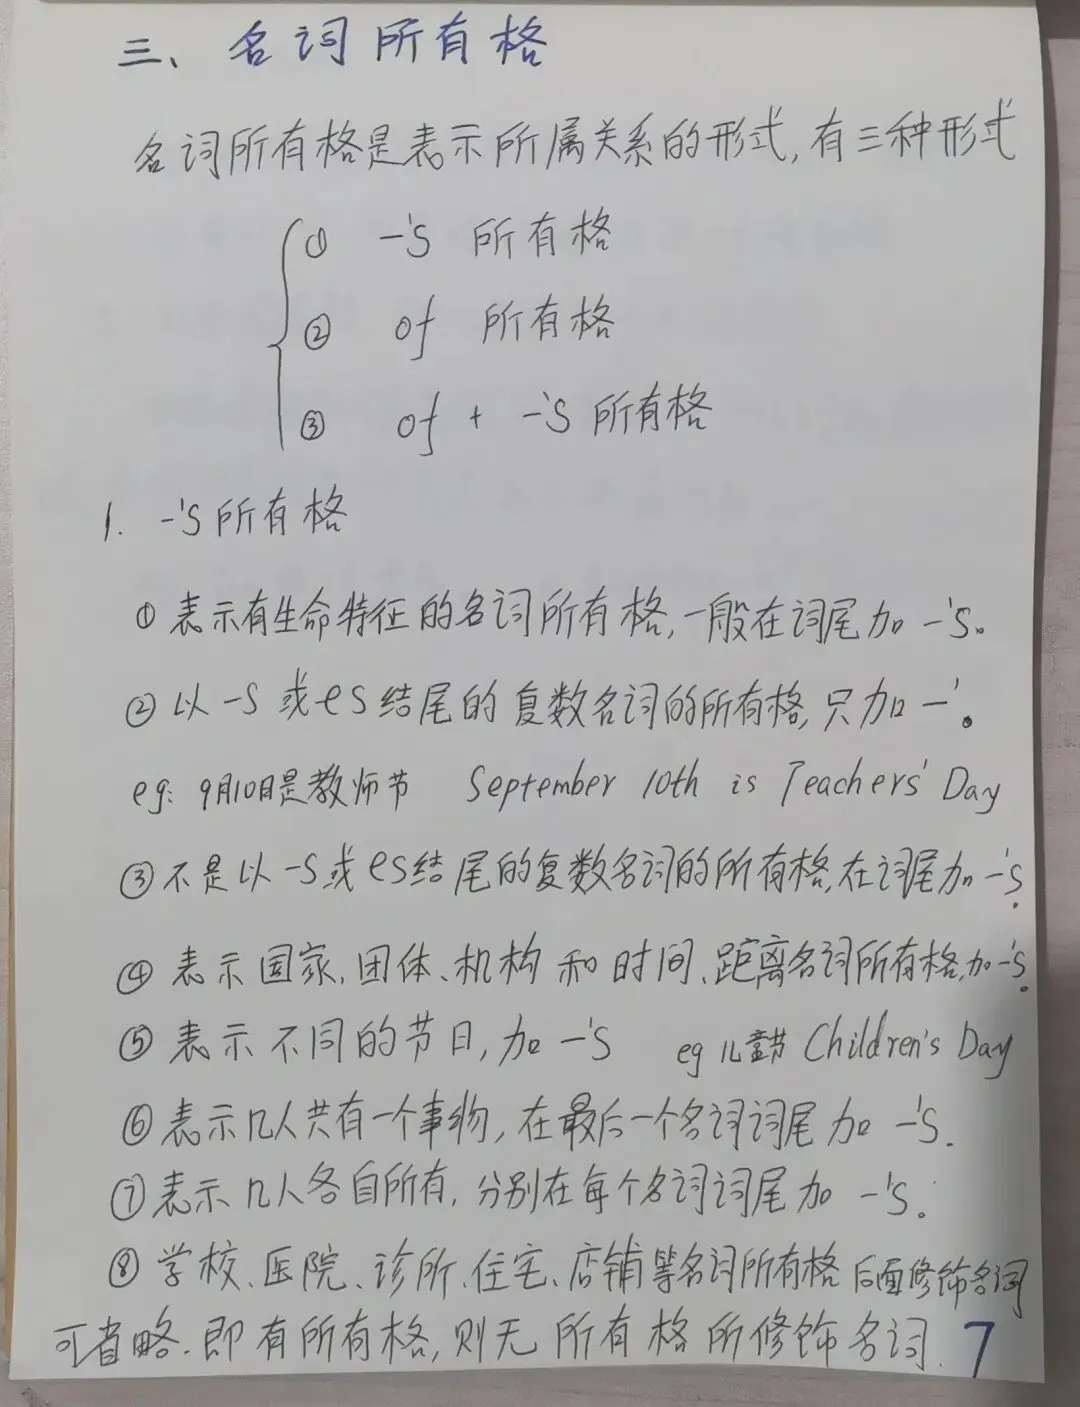 三、名词所有格
名词所有格是表示所属关系的形式,有三种形式
① -'s 所有格
② of 所有格
③ of + -'s 所有格
1. -'s所有格
① 表示有生命特征的名词所有格,一般在词尾加 -'s。
② 以 -s 或es结尾的复数名词的所有格,只加 -'。
eg: 9月10日是教师节 September 10th is Teachers' Day
③ 不是以 -s或es结尾的复数名词的所有格,在词尾加 -'s.
④ 表示国家、团体、机构和时间、距离名词所有格,加-'s。
⑤ 表示不同的节日,加 -'s eg 儿童节 Children's Day
⑥ 表示几人共有一个事物,在最后一个名词词尾加 -'s.
⑦ 表示几人各自所有,分别在每个名词词尾加 -'s.
⑧ 学校、医院、诊所、住宅、店铺等名词所有格后面修饰名词
可省略.即有所有格,则无所有格所修饰名词. 7